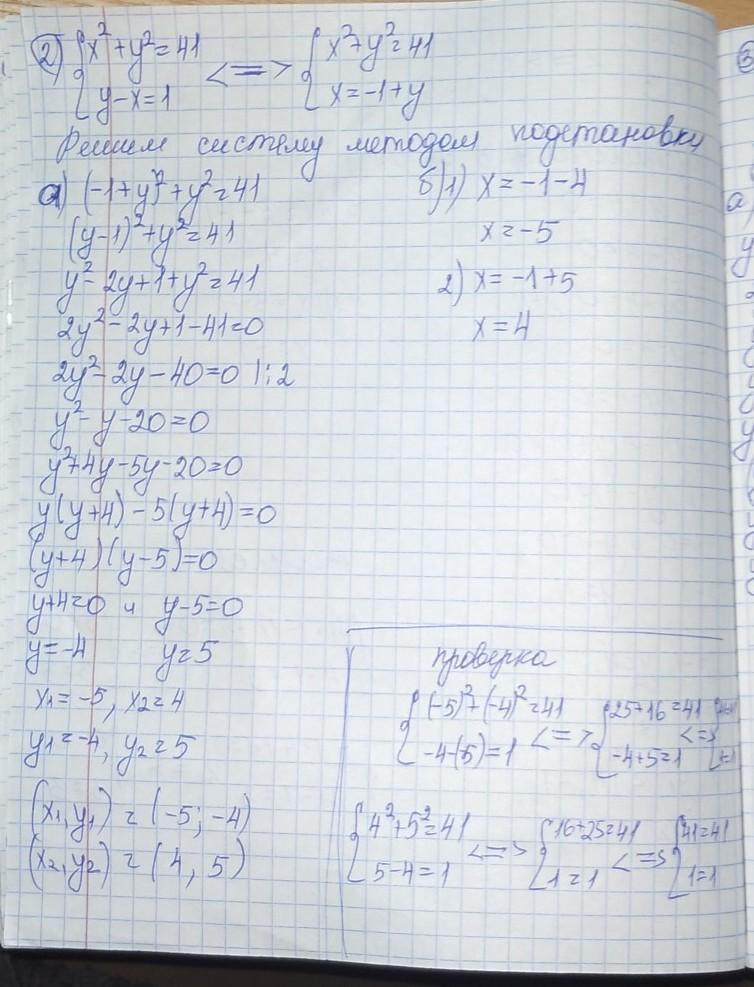 2) { x² + y² = 41 <=> { x² + y² = 41
y - x = 1 x = -1 + y
Решим систему методом подстановки
а) (-1 + y)² + y² = 41
(y - 1)² + y² = 41
y² - 2y + 1 + y² = 41
2y² - 2y + 1 - 41 = 0
2y² - 2y - 40 = 0 |:2
y² - y - 20 = 0
y² + 4y - 5y - 20 = 0
y(y + 4) - 5(y + 4) = 0
(y + 4)(y - 5) = 0
y + 4 = 0 и y - 5 = 0
y = -4 y = 5
x₁ = -5, x₂ = 4
y₁ = -4, y₂ = 5
(x₁, y₁) = (-5; -4)
(x₂, y₂) = (4, 5)
б) 1) x = -1 - 4
x = -5
2) x = -1 + 5
x = 4
проверка
{ (-5)² + (-4)² = 41 <=> { 25 + 16 = 41 <=> {
-4 - (-5) = 1 -4 + 5 = 1
{ 4² + 5² = 41 <=> { 16 + 25 = 41 <=> { 41 = 41
5 - 4 = 1 1 = 1 1 = 1
3
а)